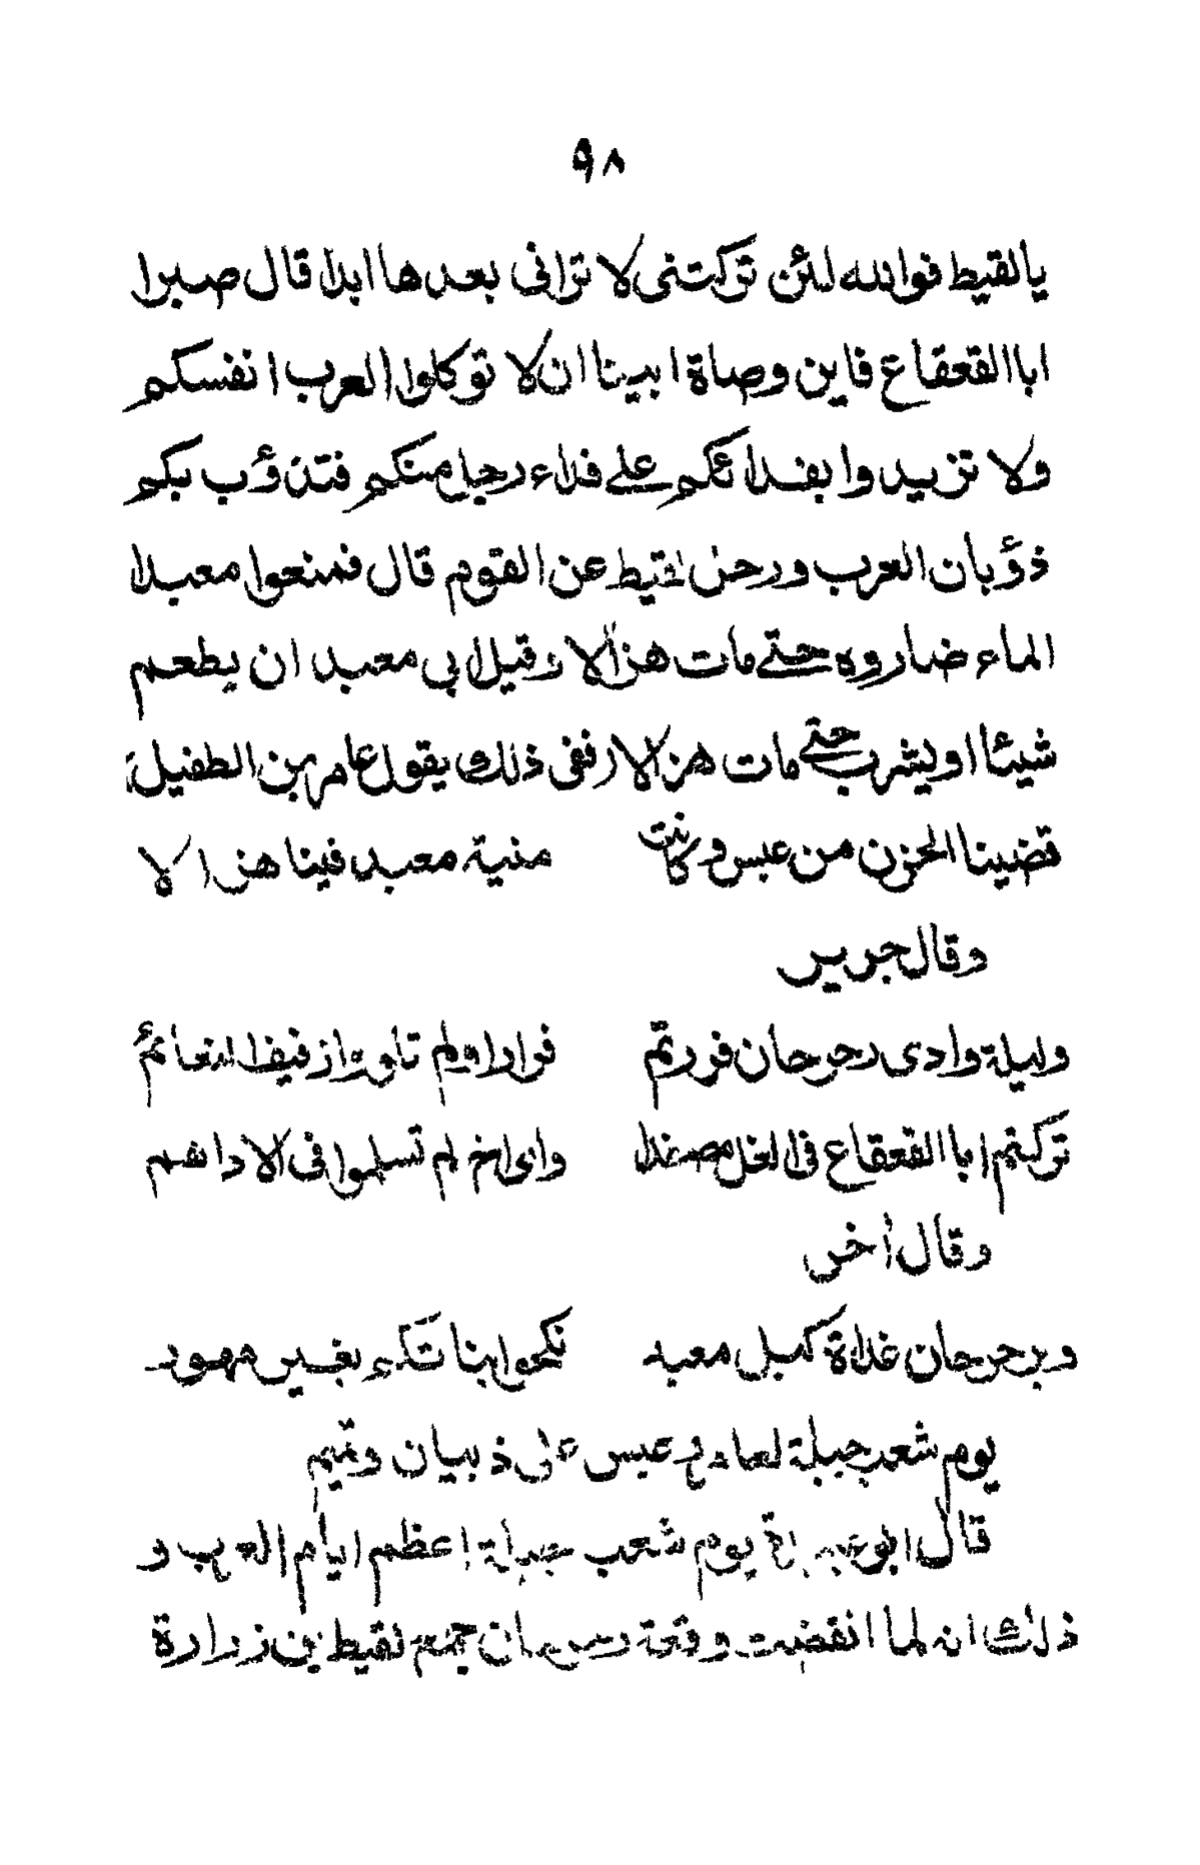 ٩٨
يالقيط فوالله لئن تركتنى لا ترانى بعدها ابدا قال صبرا
ابا القعقاع فاين وصاة ابينا ان لا توكلوا العرب انفسكم
ولا تزيدوا بفدائكم على فداء رجل منكم فتذؤب بكم
ذؤبان العرب ورحل لقيط عن القوم قال فمنعوا معبدا
الماء ضاروه حتى مات هزالا وقيل ابى معبد ان يطعم
شيئا او يشرب حتى مات هزالا ففى ذلك يقول عامر بن الطفيل
قضينا الحزن من عبس وكانت منية معبد فينا هزالا
وقال جرير
وليلة وادى رحرحان فررتم فرارا ولم تلووا زفيف النعائم
تركتم ابا القعقاع فى الغل مصفدا واى اخ لم تسلموا فى الاداهم
وقال اخر
وبرحرحان غداة كبل معبد نكحوا بناتكم بغير مهور
يوم شعب جبلة لعامر وعبس على ذبيان وتميم
قال ابو عبيدة يوم شعب جبلة اعظم ايام العرب و
ذلك انه لما انقضت وقعة رحرحان جمع لقيط بن زرارة